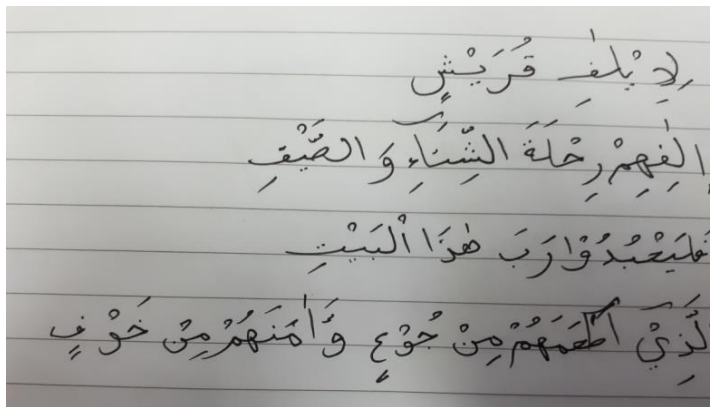 لِاِيْلٰفِ قُرَيْشٍ
اٖلٰفِهِمْ رِحْلَةَ الشِّتَآءِ وَ الصَّيْفِ
فَلْيَعْبُدُوْا رَبَ هٰذَا الْبَيْتِ
لَّذِيْٓ اَطْعَمَهُمْ مِنْ جُوْعٍ وَّاٰمَنَهُمْ مِنْ خَوْفٍ